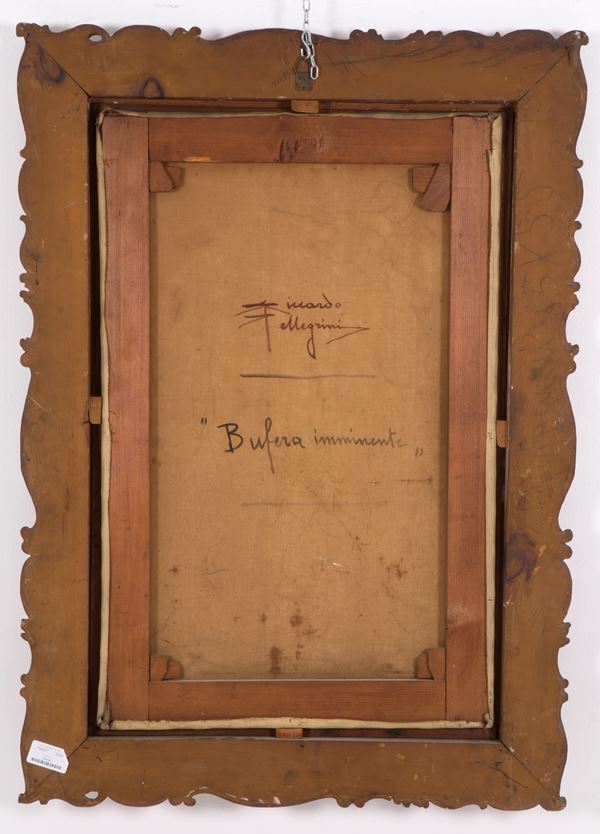 Riccardo
Pellegrini
"Bufera imminente"